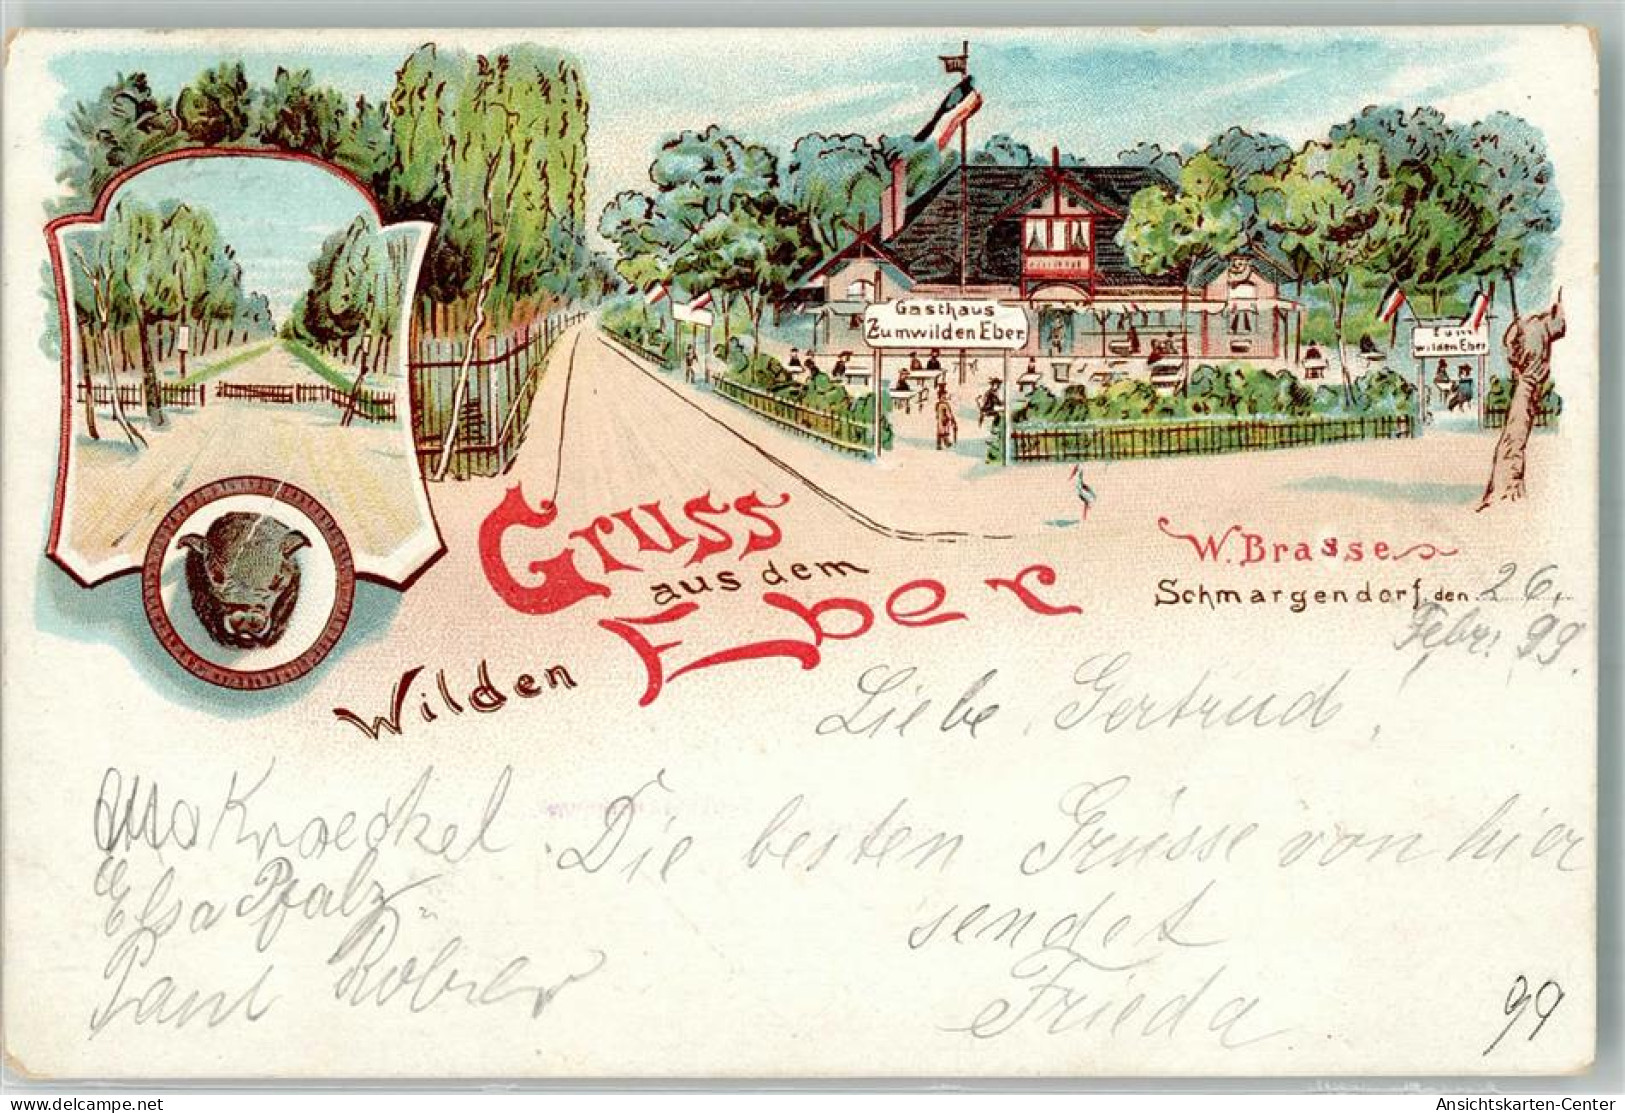 Gasthaus
Zum wilden Eber.
Zum
wilden Eber.
Gruss
aus dem
Wilden Eber
W. Brasse
Schmargendorf, den 26.
Febr. 99.
Liebe Gertrud,
Die besten Grüsse von hier
sendet
Frieda
Otto Kraeckel.
Elsa Pfalz
Paul
99
Ansichtskarten-Center